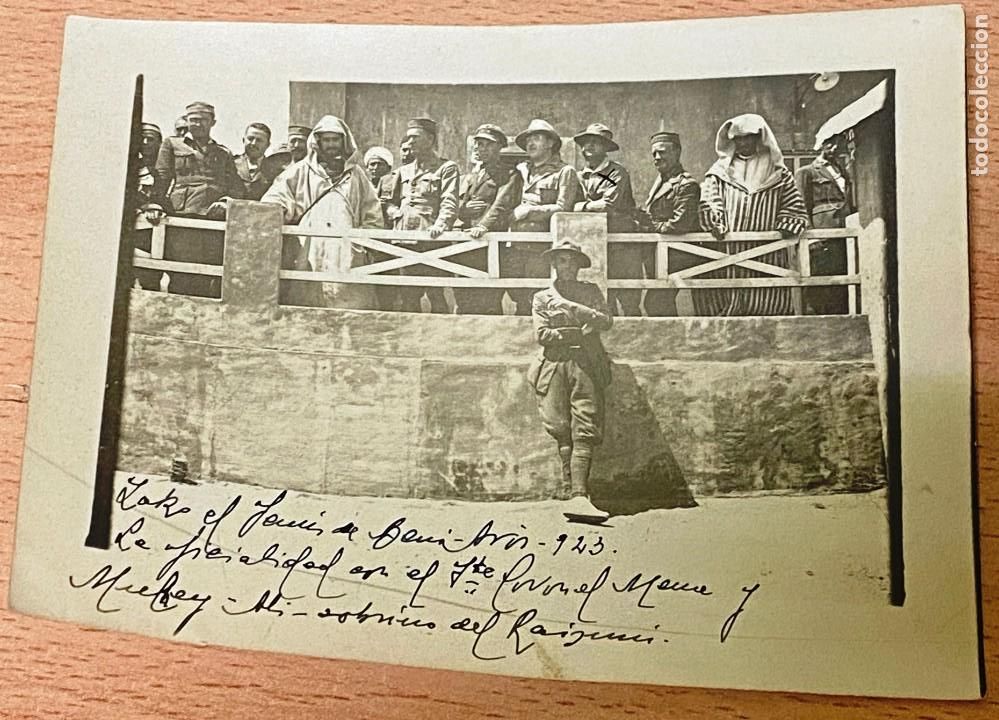 Zoko el Jemis de Beni-Aros - 923.
La oficialidad con el Tte Coronel Mene y
Muley-Ali-sobrino del Raisuni.
todocoleccion